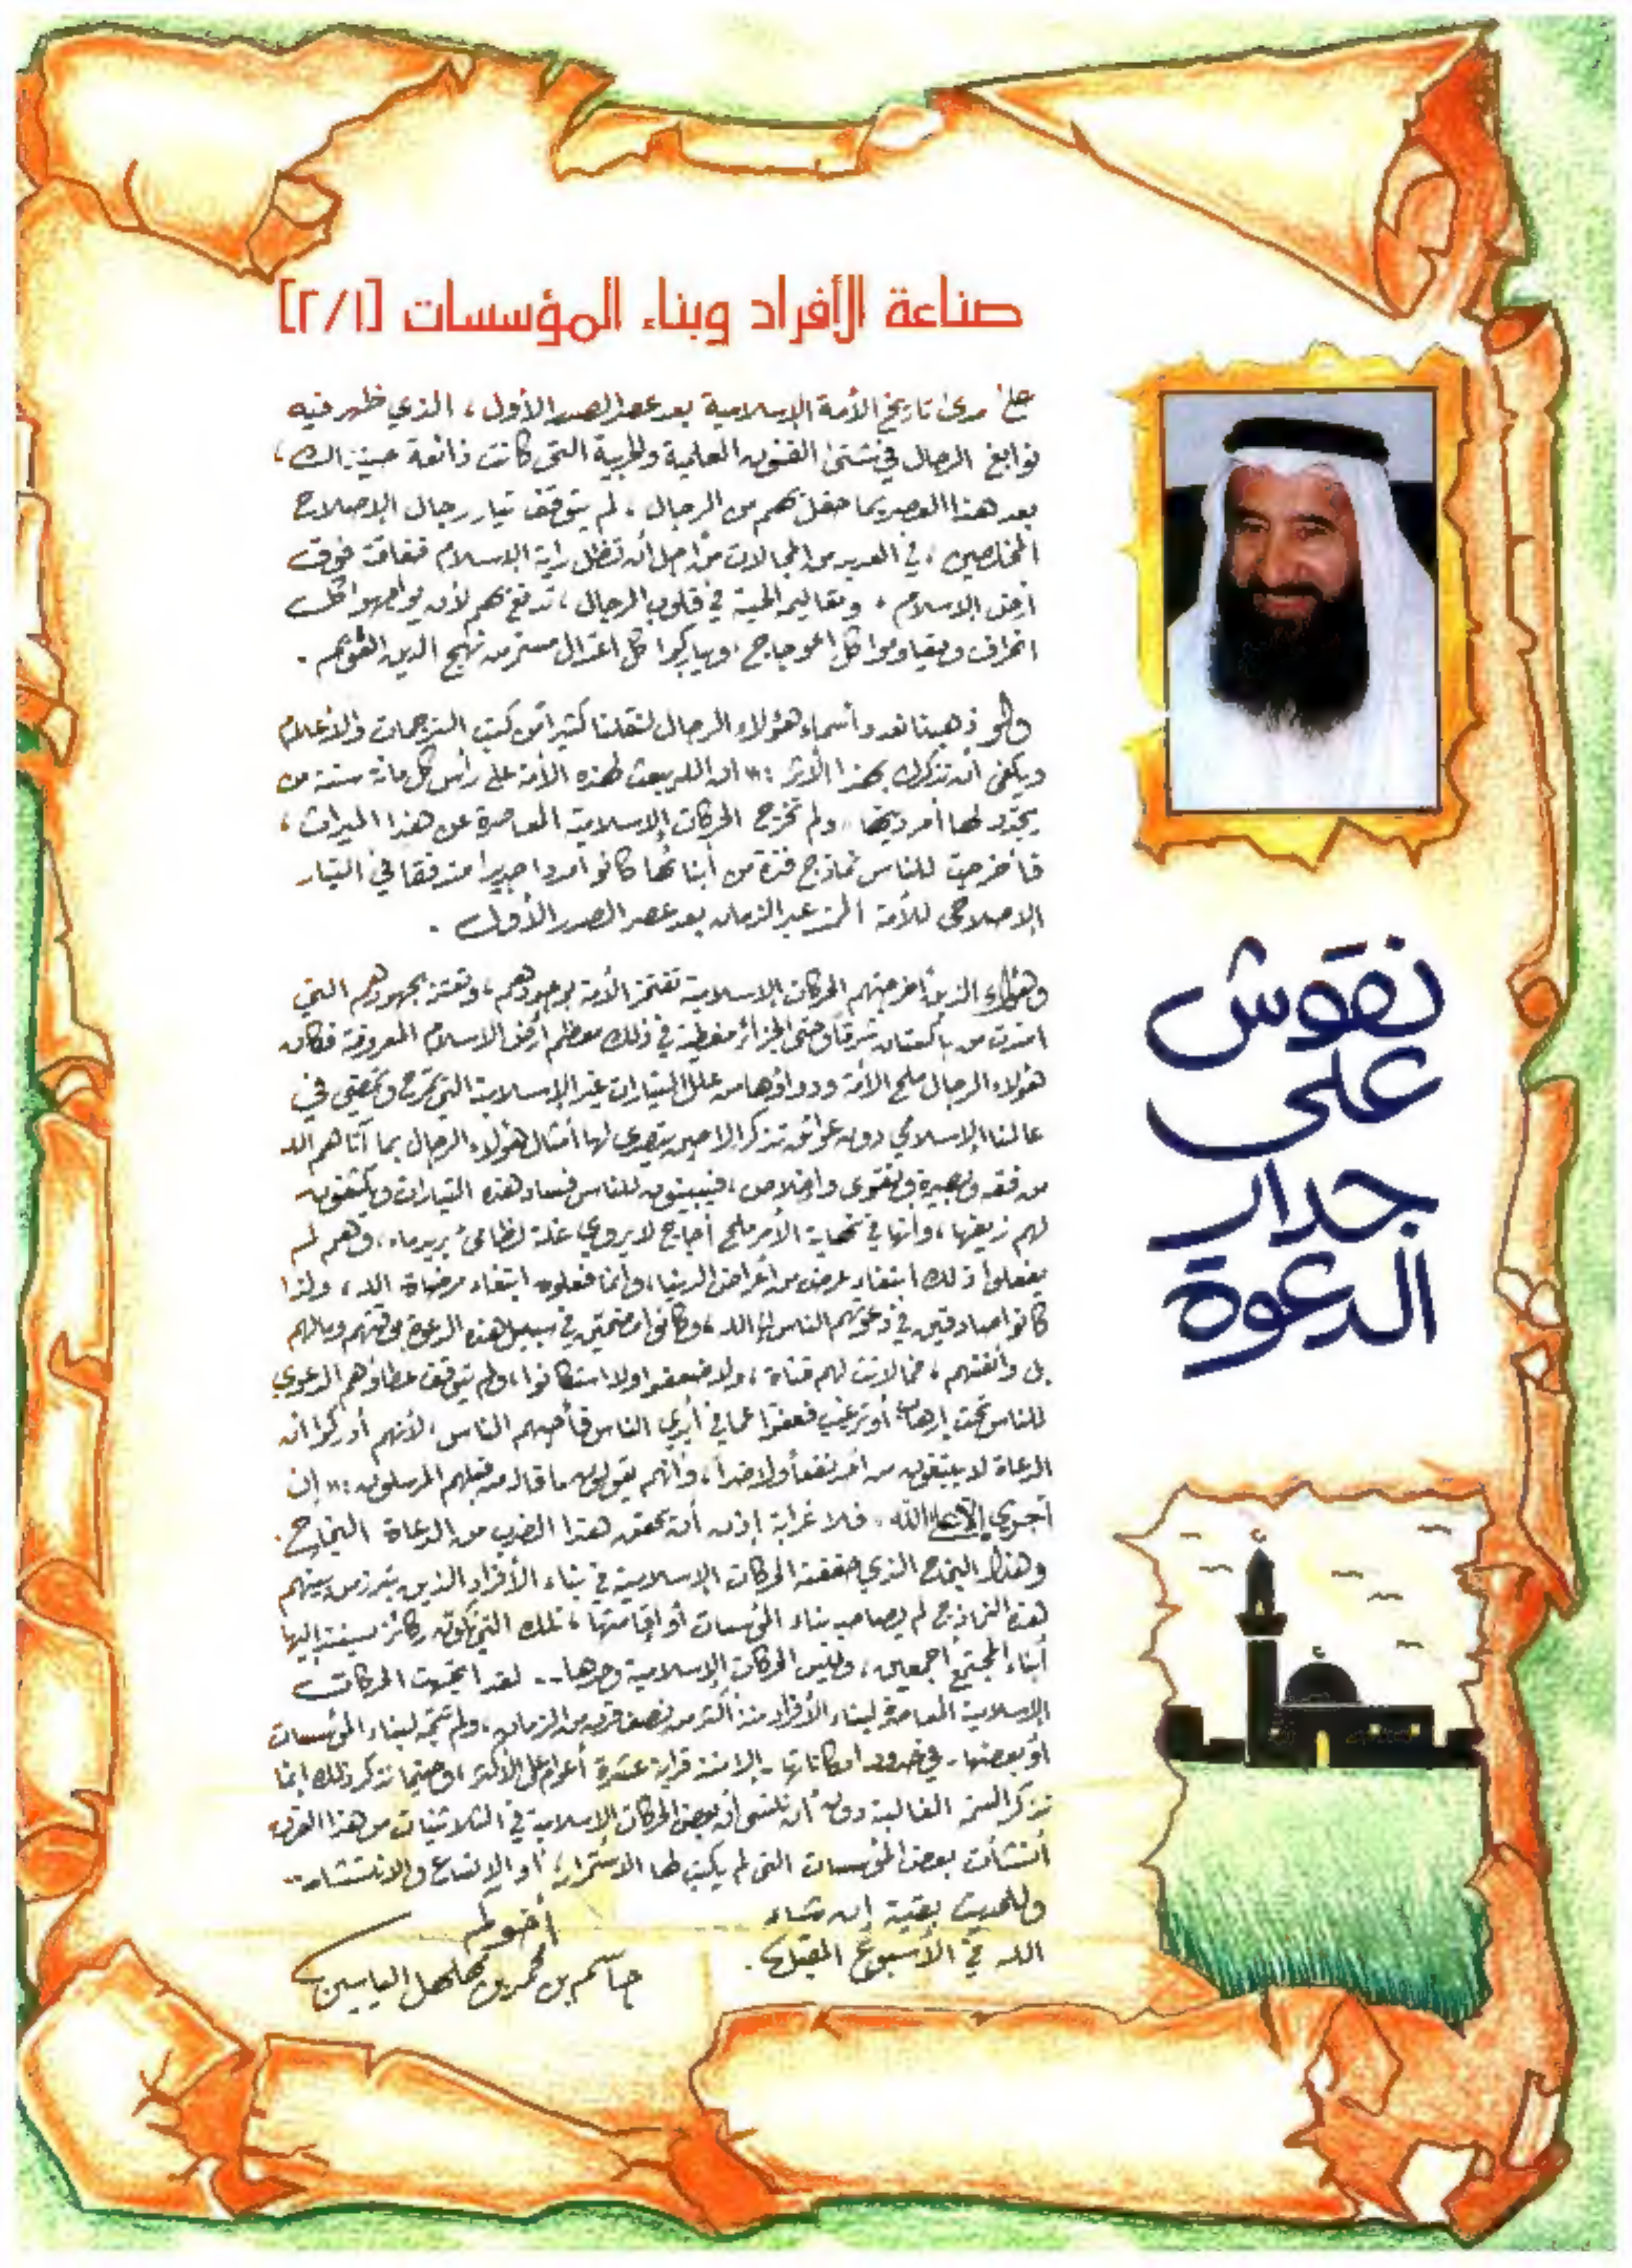 صناعة الأفراد وبناء المؤسسات [٢/١]
على مدى تاريخ الأمة الإسلامية بعد عصر الصدر الأول، الذي ظهر فيه
نوابغ الرجال في شتى الفنون العلمية والحربية التي كانت ذائعة حينذاك،
بعد هذا العصر بما حفل بهم من الرجال، لم يتوقف تيار رجال الإصلاح
المخلصين، في العديد من المجالات من أجل أن تظل راية الإسلام خفاقة فوق
أرض الإسلام، وتعاليمه الحية في قلوب الرجال، تدفعهم لأن يواجهوا كل
انحراف ويقاوموا كل اعوجاج، ويباركوا كل اعتدال مستمر من نهج الدين القويم.
ولو ذهبنا نعد أسماء هؤلاء الرجال لنقلنا كثيرا من كتب الترجمات والأعلام
ويكفي أن نذكرك بهذا الأثر: "ان الله يبعث لهذه الأمة على رأس كل مائة سنة من
يجدد لها أمر دينها" ولم تخرج الحركات الإسلامية المعاصرة عن هذا الميراث،
فأخرجت للناس نماذج فذة من أبنائها كانوا مددا جديدا متدفقا في التيار
الإصلاحي للأمة عبر الزمان بعد عصر الصدر الأول.
وهؤلاء الذين أخرجتهم الحركات الإسلامية تفتخر الأمة بوجودهم، وتعتز بجهودهم التي
امتدت من باكستان شرقا وحتى الجزائر مغطية في ذلك معظم أرض الاسلام المعروفة فكان
هؤلاء الرجال ملح الأمة ودواؤها من علل التيارات غير الإسلامية التي تمرح وتمضي في
عالمنا الإسلامي دون عوائق تذكر إلا حين يتصدى لها أمثال هؤلاء الرجال بما آتاهم الله
من فقه وبصيرة وتقوى وإخلاص، فيبينون للناس فساد هذه التيارات ويكشفون
لهم زيفها، وأنها في نهاية الأمر ملح أجاج لا يروي غلة لظامئ يريد ماء، وهم لم
يفعلوا ذلك ابتغاء عرض من أغراض الدنيا، وانما فعلوه ابتغاء مرضاة الله، ولذا
كانوا صادقين في دعوتهم الناس إلى الله، وكانوا مضحين في سبيل هذه الدعوة بوقتهم ومالهم
بل وأنفسهم، فما لانت لهم قناة، ولا ضعفوا ولا استكانوا، ولم يتوقف عطاؤهم الدعوي
للناس تحت إرهاب أو ترغيب فعفوا عما في أيدي الناس فأحبهم الناس، لأنهم أدركوا أن
الدعاة لا يبتغون من أحد نفعا ولا ضرا، وانهم يقولون ما قال من قبلهم المرسلون: "إن
أجري إلا على الله" فلا غرابة إذن أن يحقق هذا الضرب من الدعاة النجاح.
وهذا النجاح الذي حققته الحركات الإسلامية في بناء الأفراد الذين يبرز من بينهم
هذه النماذج لم يصاحبه بناء المؤسسات أو إقامتها، تلك التي تكون ركائز يستند إليها
أبناء المجتمع أجمعين، وليس الحركات الإسلامية وحدها.. لقد اتجهت الحركات
الإسلامية المعاصرة لبناء الأفراد منذ أكثر من نصف قرن من الزمان، ولم تتجه لبناء المؤسسات
أو بعضها - في حدود امكاناتها - إلا منذ قرابة عشرة أعوام على الأكثر، وحينما نذكر ذلك إنما
نذكر السمة الغالبة دون أن ننسى أن بعض الحركات الإسلامية في الثلاثينات من هذا القرن
أنشأت بعض المؤسسات التي لم يكتب لها الاستمرار، أو الاتساع والانتشار..
وللحديث بقية إن شاء
الله في الأسبوع المقبل.
أخوكم
جاسم بن محمد بن مهلهل الياسين
نقوش
على
جدار
الدعوة